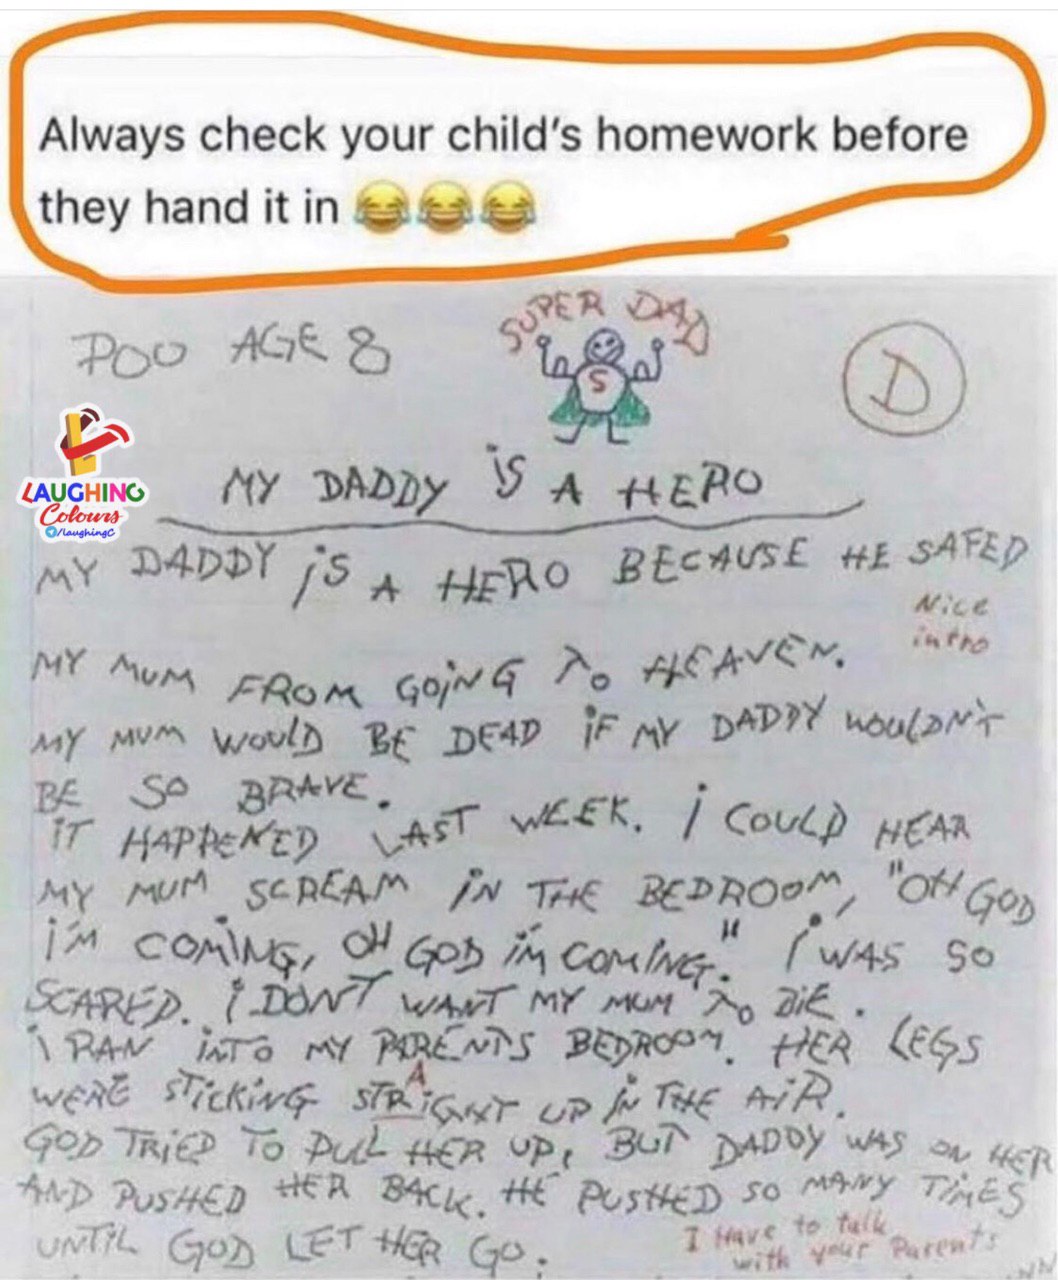 Always check your child's homework before
they hand it in 😂😂😂
SUPER DAD
POO AGE 8
S
D
LAUGHING
Colours
/laughingC
MY DADDY iS A HERO
MY DADDY iS A HERO BECAUSE HE SAFED
Nice
intro
MY MUM FROM GOiNG TO HEAVEN.
MY MUM WOULD BE DEAD iF MY DADDY WOULDN'T
BE SO BRAVE.
iT HAPPENED LAST WEEK. i COULD HEAR
MY MUM SCREAM iN THE BEDROOM, "OH GOD
i'M COMiNG, OH GOD i'M COMiNG." i WAS SO
SCARED. i DON'T WANT MY MUM TO DiE.
i RAN iNTO MY PARENTS BEDROOM. HER LEGS
A
WERE STiCKiNG STRiGHT UP iN THE AiR.
GOD TRiED TO PULL HER UP, BUT DADDY WAS ON HER
AND PUSHED HER BACK. HE PUSHED SO MANY TiMES
UNTiL GOD LET HER GO.
I Have to talk
with your Parents